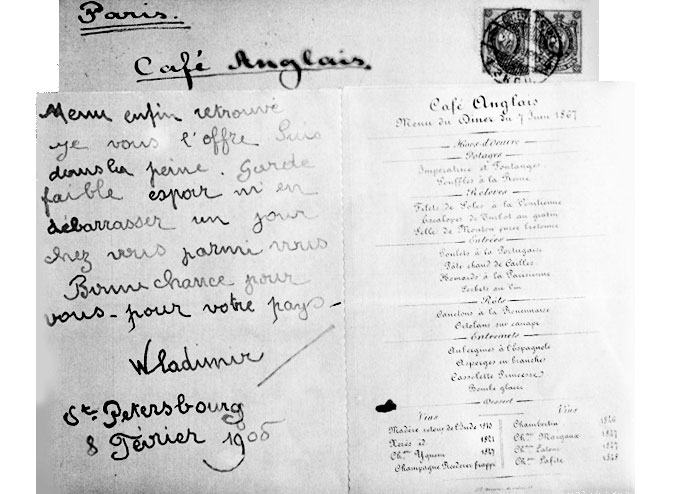 Paris.
Café Anglais.
Menu enfin retrouvé
je vous l'offre Suis
dans la peine. Garde
faible espoir m'en
débarrasser un jour
chez vous parmi vous
Bonne chance pour
vous - pour votre pays -
Wladimir
St. Petersbourg
8 Février 1905
Café Anglais
Menu du Diner du 7 Juin 1867
Hors-d'œuvre
Potages
Impératrice et Fontanges
Soufflés à la Reine
Relevés
Filets de Soles à la Vénitienne
Escalopes de Turbot au gratin
Selle de Mouton purée bretonne
Entrées
Poulets à la Portugaise
Pâté chaud de Cailles
Homards à la Parisienne
Sorbets au Vin
Rôts
Canetons à la Rouennaise
Ortolans sur canapé
Entremets
Aubergines à l'Espagnole
Asperges en branches
Cassolette Princesse
Bombe glacée
Dessert
Vins
Madère retour de l'Inde 1810
Xérès 1821
Ch.au Yquem 1847
Champagne Roederer frappé
Vins
Chambertin 1846
Ch.au Margaux 1847
Ch.au Latour 1847
Ch.au Lafite 1848